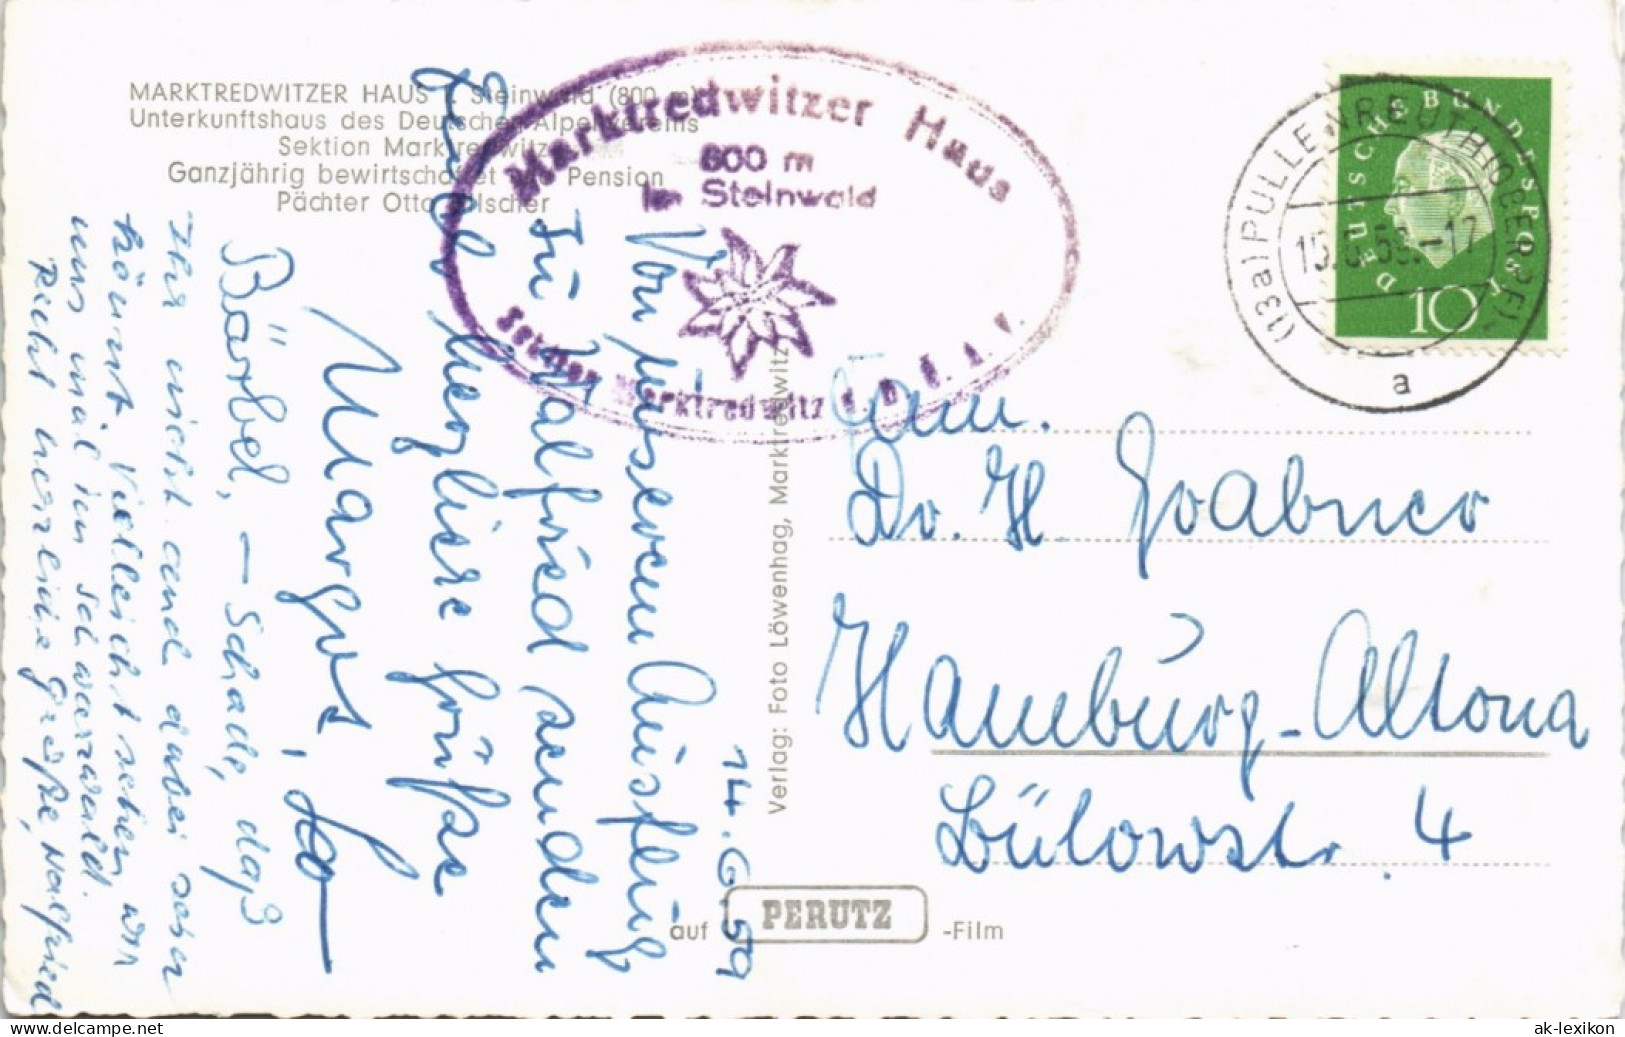 MARKTREDWITZER HAUS i. Steinwald (800 m)
Unterkunftshaus des Deutschen Alpenvereins
Sektion Marktredwitz
Ganzjährig bewirtschaftet Pension
Pächter Otto
Marktredwitzer Haus
800 m
im Steinwald
Sektion Marktredwitz d. D. A. V.
14.6.59
Von unserem Ausflug
zu Walfried senden
Euch herzliche Grüße
Margot,
Bärbel, – Schade, daß
Ihr nicht and dabei sein
könnt. Vielleicht sehen wir
uns mal im Schwarzwald.
Recht herzliche Grüße, Walfried
Verlag: Foto Löwenhag, Marktredwitz
auf PERUTZ -Film
DEUTSCHE BUNDESPOST
10
(13a) PULLENREUTH (OBERPF)
15.6.59.-17
a
Fam.
Dr. H. Grabner
Hamburg-Altona
Bülowstr. 4
www.delcampe.net
ak-lexikon